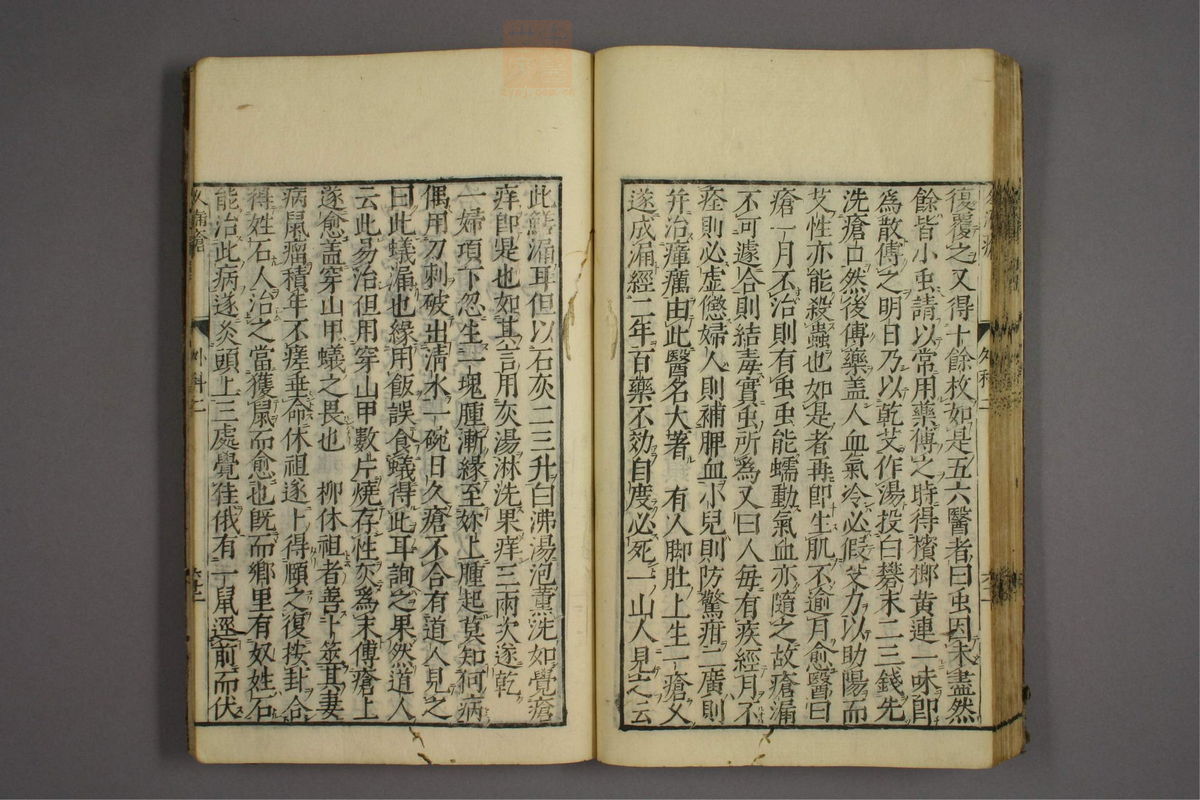 復覆之又得十餘枚如是五六醫者曰虫因未盡然
餘皆小虫請以常用藥傅之時得檳榔黄連二味卽
為散傅之明日乃以乾艾作湯投白礬末二三錢先
洗瘡口然後傅藥盖人血氣冷必假艾力以助陽而
艾性亦能殺蟲也如是者再卽生肌不逾月愈醫曰
瘡一月不治則有虫虫能蠕動氣血亦隨之故瘡漏
不可遽合則結毒實虫所為又曰人毎有疾經月不
痊則必虚憊婦人則補脾血小兒則防驚疳二廣則
并治瘴癘由此醫名大著　有人脚肚上生一瘡久
遂成漏經二年百藥不効自度必死一山人見之云
此鱔漏耳但以石灰二三升白沸湯泡薰洗如覺瘡
痒卽是也如其言用灰湯淋洗果痒三兩次遂乾
一婦項下忽生一塊腫漸縁至妳上腫起莫知何病
偶用刀刺破出清水一碗日久瘡不合有道人見之
曰此蟻漏也縁用飯誤食蟻得此耳詢之果然道人
云此易治但用穿山甲數片燒存性灰為末傅瘡上
遂愈盖穿山甲蟻之畏也　柳休祖者善卜筮其妻
病鼠瘤積年不瘥垂命休祖遂卜得頤之復按卦合
得姓石人治之當獲鼠而愈也既而鄉里有奴姓石
能治此病遂灸頭上三處覺佳俄有一鼠逕前而伏
外科二
外科二